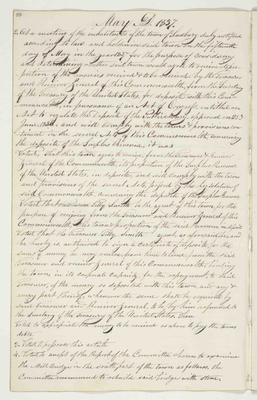 May A.D. 1837.
At a meeting of the inhabitants of the town of Duxbury duly notified
according to law and holden in said town on the fifteenth
day of May in the year for the purpose of considering
and determining whether said town would agree to receive its pro-
portion of the monies received & to be received by the Treasurer
and Receiver General of this Commonwealth from the Secretary
of the Treasury of the United States, for deposit with this Com-
monwealth in pursuance of an Act of Congress entitled an
Act to regulate the Deposits of the public money, approved
June and will comply with the terms & provisions con-
tained in the several Acts of this Commonwealth concerning
the deposite of the Surplus Revenue, it was
Voted, that this town agree to receive from the Treasurer & Receiver
General of the Commonwealth its proportion of the Surplus Revenue
of the United States, on deposite, and will comply with the terms
and provisions of the several Acts passed by the Legislature of
said Commonwealth concerning the deposite of the Surplus Revenue
Voted the be the agent of this town, for the
purpose of receiving from the Treasurer and Receiver General of this
Commonwealth this town's proportion of the said Revenue on deposit
Voted that the Treasurer as aforesaid, and
he hereby is authorized to sign a certificate of deposite for the
sum of money he may receive from time to time from the
Treasurer and Receiver General of this Commonwealth, binding
the town in its corporate capacity for the repayment to said
Treasurer, of the money so deposited with this town, and any &
every part thereof, whenever the same shall be required by
said Treasurer and Receiver General, to be by him refunded to
the Secretary of the Treasury of the United States.
Voted to appropriate the money to be received so as to pay the towns
debts
2. Voted to pass over this article
4. Voted to accept of the Report of the Committee chosen to examine
the Mill Bridge in the south part of the town as follows. the
Committee recommend to rebuild said bridge with stone,